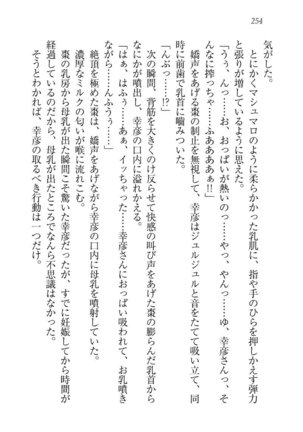 254
気がした。
とにかくマシュマロのように柔らかかった乳肌に、指や手のひらを押しかえす弾力
と張りが増しているように思えた。
「ううん、んっ……お、おっぱいが熱いのっ……やっ、やんっ……ゆ、幸彦さんっ、そ
んなに搾っちゃ……ふああああぁ!!」
嬌声をあげる棗の制止を無視して、幸彦はジュルジュルと音をたてて吸い立て、同
時に前歯で乳首に噛みついた。
「んぶっ……!?」
次の瞬間、背筋を大きくのけ反らせて快感の叫び声をあげた棗の膨らんだ乳首から
なにかが噴出し、幸彦の口内に溢れかえる。
「はぁ、はふぅ……あぁ、イッちゃった……幸彦さんにおっぱい吸われて、お乳噴き
ながら……んふううぅ……」
絶頂を極めた棗は、嬌声をあげながら幸彦の口内に母乳を噴射していた。
濃厚なミルクの匂いが喉に流れこむ。
棗の乳房から母乳が出た瞬間こそ驚いた幸彦だったが、すでに妊娠してから時間が
経過しているのだから、母乳が出たところでなんら不思議はなかった。
そうとわかれば、幸彦の取るべき行動は一つだけ。